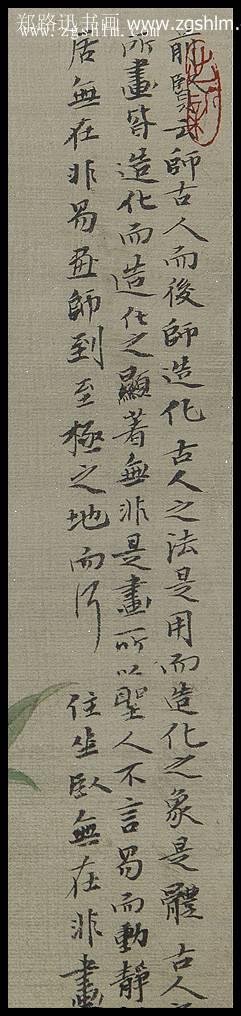 郑路迅书画 www.zgshlm.
www.zgshlm.com
前賢云師古人而後師造化古人之法是用而造化之象是體古人
所畫皆造化而造化之顯著無非是畫所以聖人不言易而動靜
居無在非易畫師到至極之地而行
住坐臥無在非畫